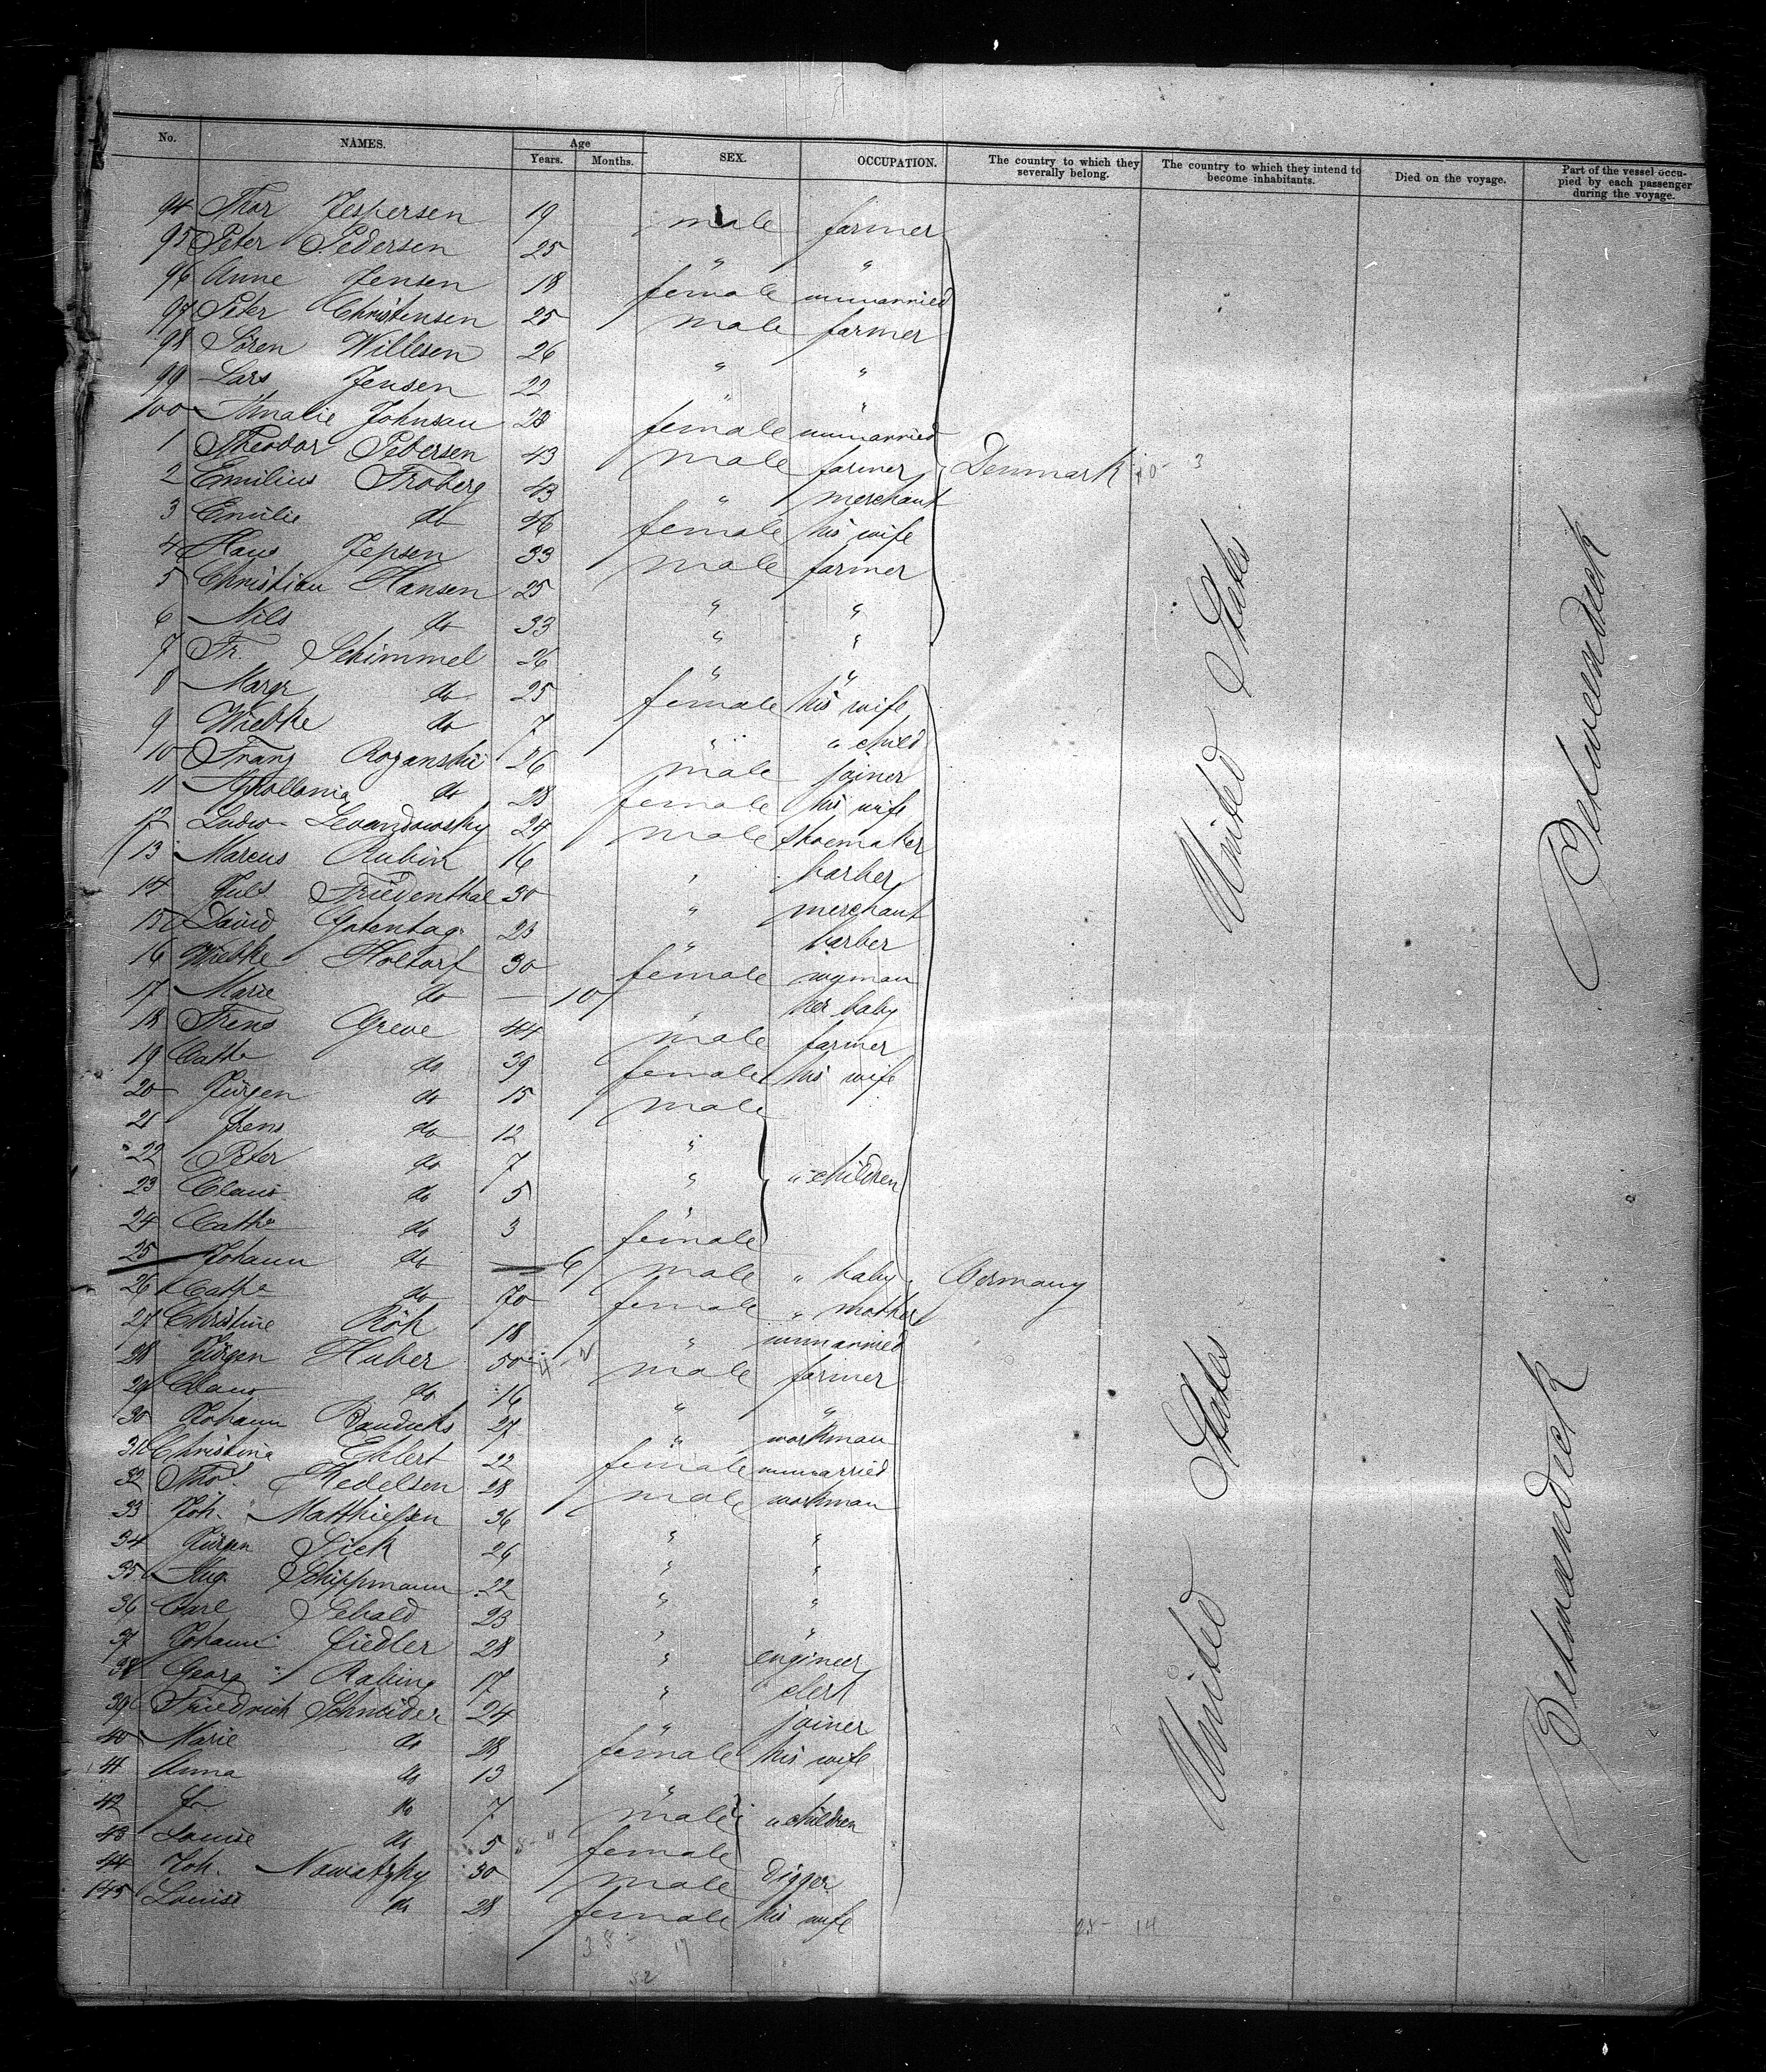 No. NAMES. Age Years. Months. SEX. OCCUPATION. The country to which they severally belong. The country to which they intend to become inhabitants. Died on the voyage. Part of the vessel occupied by each passenger during the voyage.
94 Thor Jespersen 19 male farmer
95 Peter Pedersen 25 " "
96 Anne Jensen 18 female unmarried
97 Peter Christensen 25 male farmer
98 Sören Willesen 26 " "
99 Lars Jensen 22 " "
100 Amalie Johnsau 28 female unmarried
1 Theodor Petersen 43 male farmer Denmark
2 Emilius Froberg 43 " merchant
3 Emilie do 46 female his wife
4 Hans Jepsen 33 male farmer
5 Christian Hansen 25 " "
6 Nils do 33 " "
7 Fr. Schimmel 26 " "
8 Margr do 25 female his wife
9 Wiebke do 7 " " child
10 Franz Roganski 26 male joiner
11 Apollonia do 28 female his wife
12 Ludw. Levandowsky 24 male shoemaker
13 Marcus Rubin 16 " barber
14 Juls Friedenthal 30 " merchant
15 David Gotentag 23 " barber
16 Wiebke Holtorf 30 female woman
17 Marie do — 10 her baby
18 Frens Greve 44 male farmer
19 Cathe do 39 female his wife
20 Jürgen do 15 male
21 Jrens do 12 "
22 Peter do 7 " " children
23 Claus do 5 "
24 Cathe do 3 female
25 Johann do — 6 male " baby Germany
26 Cathe do 70 female " mother
27 Christine Röh 18 " unmarried
28 Jürgen Huber 50 male farmer
29 Claus do 16 " "
30 Johann Bandicks 27 " workman
31 Christina Ehlert 22 female unmarried
32 Tho. Kedelsen 28 male workman
33 Joh. Matthiessen 36 " "
34 Jürgen Sick 26 " "
35 Aug. Schippmann 22 " "
36 Carl Sebald 23 " "
37 Johann Fiedler 28 " engineer
38 Georg Rabing 17 " clerk
39 Friedrich Schneider 24 " joiner
40 Marie do 28 female his wife
41 Anna do 13 "
42 Fr. do 7 male " children
43 Louise do 5 female
44 Joh. Nawatzky 30 male digger
145 Louise do 28 female his wife
United States
Betweendeck
United States
Betweendeck